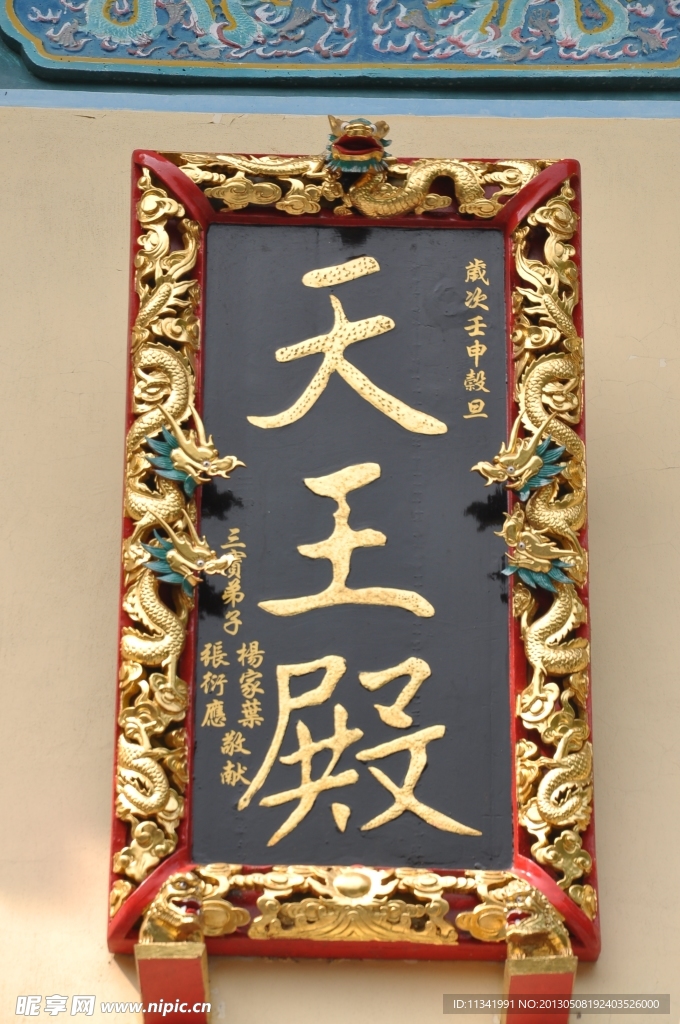 歲次壬申穀旦
天王殿
三寶弟子
楊家葉
張衍應
敬献
昵享网 www.nipic.cn
ID:11341991 NO:20130508192403526000